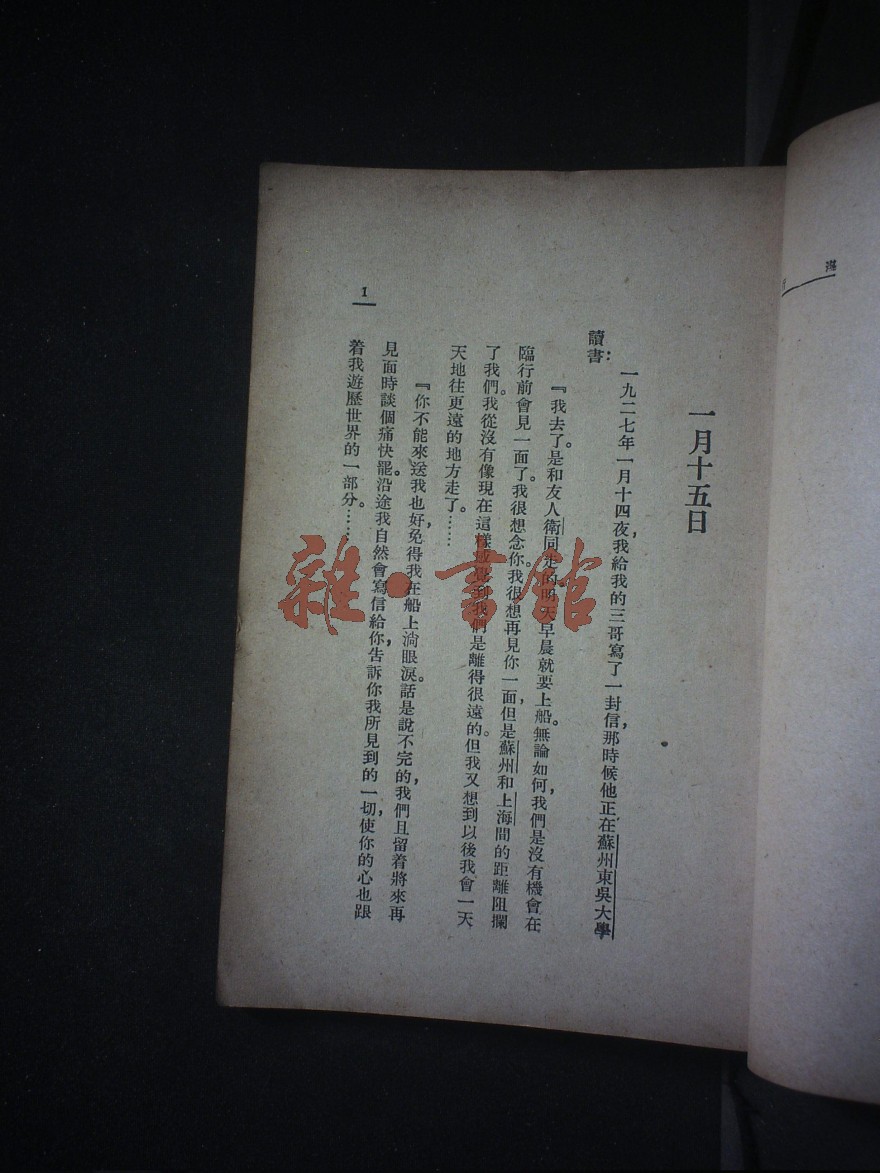 一月十五日
一九二七年一月十四夜，我給我的三哥寫了一封信，那時候他正在蘇州東吳大學
讀書：
『我去了。是和友人衛同走的。明天早晨就要上船。無論如何，我們是沒有機會在
臨行前會見一面了。我很想念你。我很想再見你一面，但是蘇州和上海間的距離阻攔
了我們。我從沒有像現在這樣感覺到我們是離得很遠的。但我又想到以後我會一天
天地往更遠的地方走了。……
『你不能來送我也好，免得我在船上淌眼淚。話是說不完的，我們且留着將來再
見面時談個痛快罷。沿途我自然會寫信給你，告訴你我所見到的一切，使你的心也跟
着我遊歷世界的一部分。……
1
雜·書館